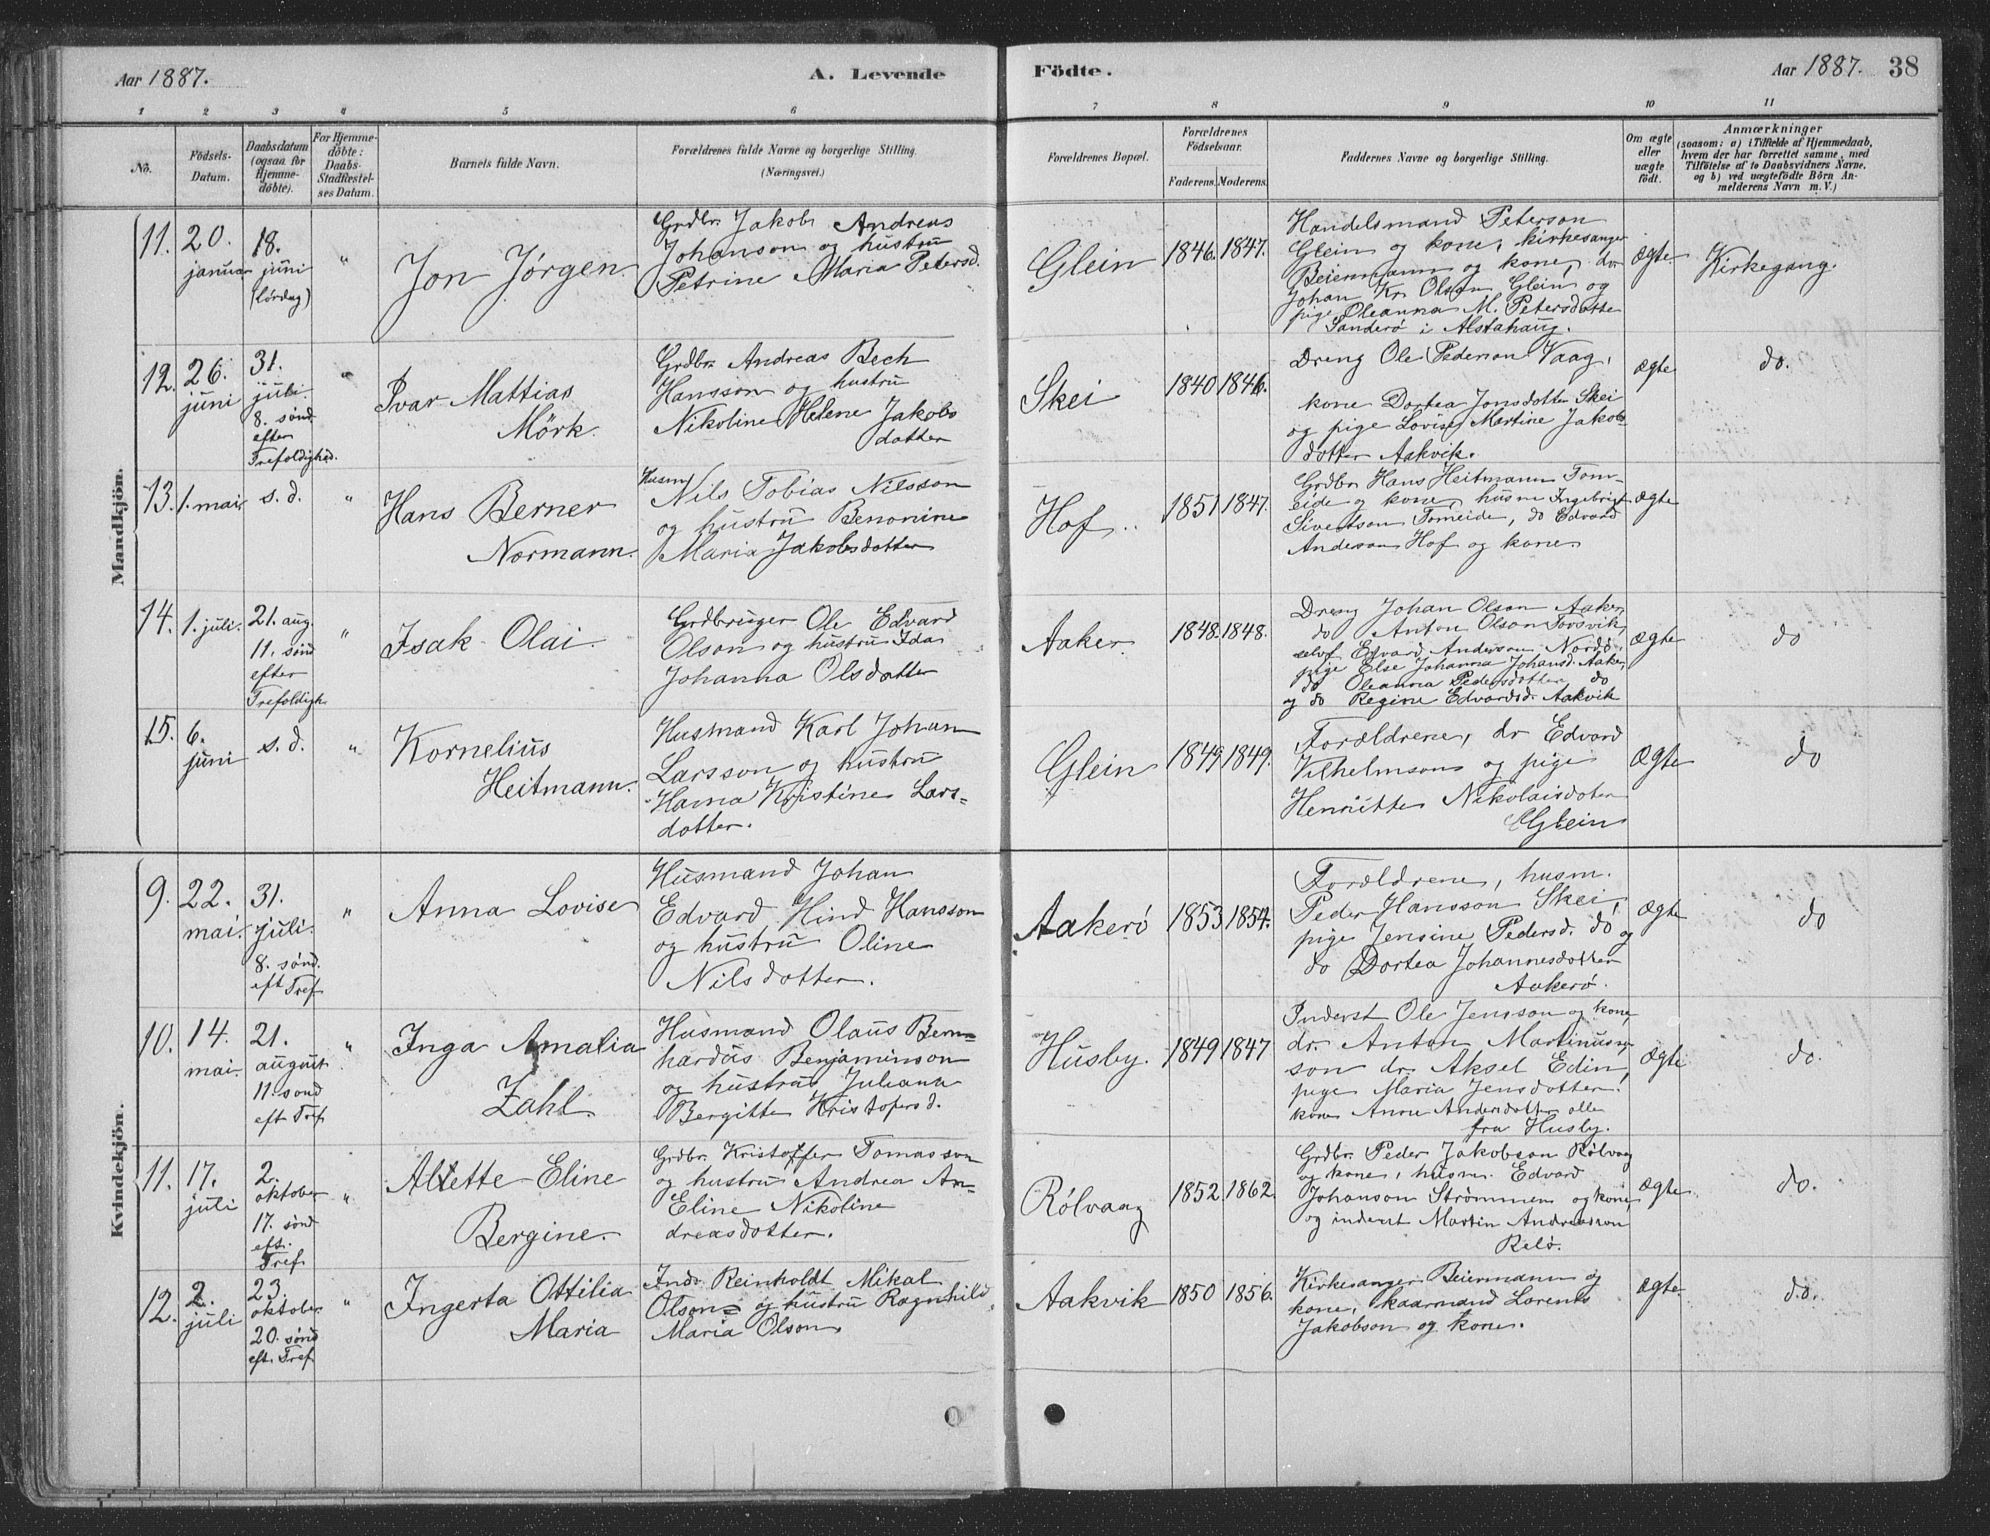 Aar 1887.
A. Levende
Födte.
Aar 1887.
38
1 2 3 4 5 6 7 8 9 10 11
No.
Födsels-
Datum.
Daabsdatum
(ogsaa for
Hjemme-
döbte).
For Hjemme-
döbte:
Daabs-
Stadfæstel-
ses Datum.
Barnets fulde Navn.
Forældrenes fulde Navne og borgerlige Stilling.
(Næringsvei.)
Forældrenes Bopæl.
Forældrenes
Födselsaar.
Faderens. Moderens.
Faddernes Navne og borgerlige Stilling.
Om ægte
eller
uægte
født.
Anmærkninger
(saasom: a) i Tilfælde af Hjemmedaab,
hvem der har forrettet samme, med
Tilföielse af to Daabsvidners Navne,
og b) ved uægtefödte Börn An-
melderens Navn m. V.)
Mandkjön.
11.
20.
januar
18.
juni
(lördag)
"
Jon Jörgen.
Grdbr. Jakob Andreas
Johanson og hustru
Petrine Maria Petersd.
Glein
1846. 1847.
Handelsmand Peterson
Glein og kone, kirkesanger
Beiermann og kone, dr
Johan Kr. Olson Glein, og
pige Oleanna M. Petersdotter
Sanderö i Alstahaug.
Ægte
Kirkegang.
12.
26.
juni
31.
juli.
8. sönd
efter
Trefoldighed.
"
Ivar Mattias
Mörk.
Grdbr. Andreas Bech
Hansson og hustru
Nikoline Helene Jakobs
dotter
Skei
1840 1846.
Dreng Ole Pederson Vaag,
kone Dortea Jonsdotter Skei
og pige Lovise Martine Jakobs
dotter Aakvik.
Ægte
do.
13.
1. mai
s. d.
"
Hans Berner
Normann.
Husm Nils Tobias Nilsson
og hustru Benonine
Maria Jakobsdotter
Hof.
1851 1847.
Grdbr. Hans Heitmann Tom-
eide og kone, husm Ingebrigt
Sivertson Tomeide, do Edvard
Anderson Hof og kone
Ægte
14.
1. juli.
21. aug.
11. sönd
efter
Trefoldigh.
"
Isak Olai.
Grdbruger Ole Edvard
Olson og hustru Ida
Johanna Olsdotter
Aaker.
1848. 1848.
Dreng Johan Olson Aaker,
do Anton Olson Torsvik,
selvf. Edvard Anderson Nordö,
pige Else Johanna Johansd. Aaker,
do Oleanna Pedersdotter do
og do Regine Edvardsd. Aakvik
Ægte
do
15.
6.
juni
s. d.
"
Kornelius
Heitmann.
Husmand Karl Johan
Larsson og hustru
Hanna Kristine Lars-
dotter.
Glein
1849 1849.
Forældrene, dr Edvard
Vilhelmson og pige
Henriette Nikolaisdotter
Glein
Ægte
do
Kvindekjön.
9.
22.
mai.
31.
juli.
8. sönd.
eft Tref
"
Anna Lovise
Husmand Johan
Edvard Hind Hansson
og hustru Oline
Nilsdotter.
Aakerö
1853 1854.
Forældrene, husm.
Peder Hansson Skei,
pige Jensine Pedersd. do og
do Dortea Johannesdotter
Aakerö.
Ægte
do
10.
14.
mai.
21.
august
11. sönd
eft Tref
"
Inga Amalia
Zahl
Husmand Olaus Bern-
hardus Benjaminson
og hustru Juliana
Bergitte Kristofersd.
Husby.
1849 1847
Inderst Ole Jensson og kone,
dr. Anton Martinus-
son dr. Aksel Edin,
pige Maria Jensdotter,
kone Anne Andersdotter alle
fra Husby.
Ægte
do.
11.
17.
juli
2.
oktober
17. sönd
eft.
Tref
"
Alette Eline
Bergine.
Grdbr. Kristoffer Tomasson
og hustru Andrea An-
Eline Nikoline
dreasdotter.
Rölvaag
1852. 1862.
Grdbr. Peder Jakobson Rölvaag
og kone, husm. Edvard
Johanson Strömmen og kone,
og inderst Martin Andreasson
Relö.
Ægte
do.
12.
2.
juli
23.
oktober
20. sönd
eft. Tref
"
Ingerta Ottilia
Maria
Inds. Reinholdt Mikal
Olson og hustru Ragnhild
Maria Olson
Aakvik
1850 1856.
Kirkesanger Beiermann og
kone, kaarmand Lorents
Jakobson og kone.
Ægte
do.